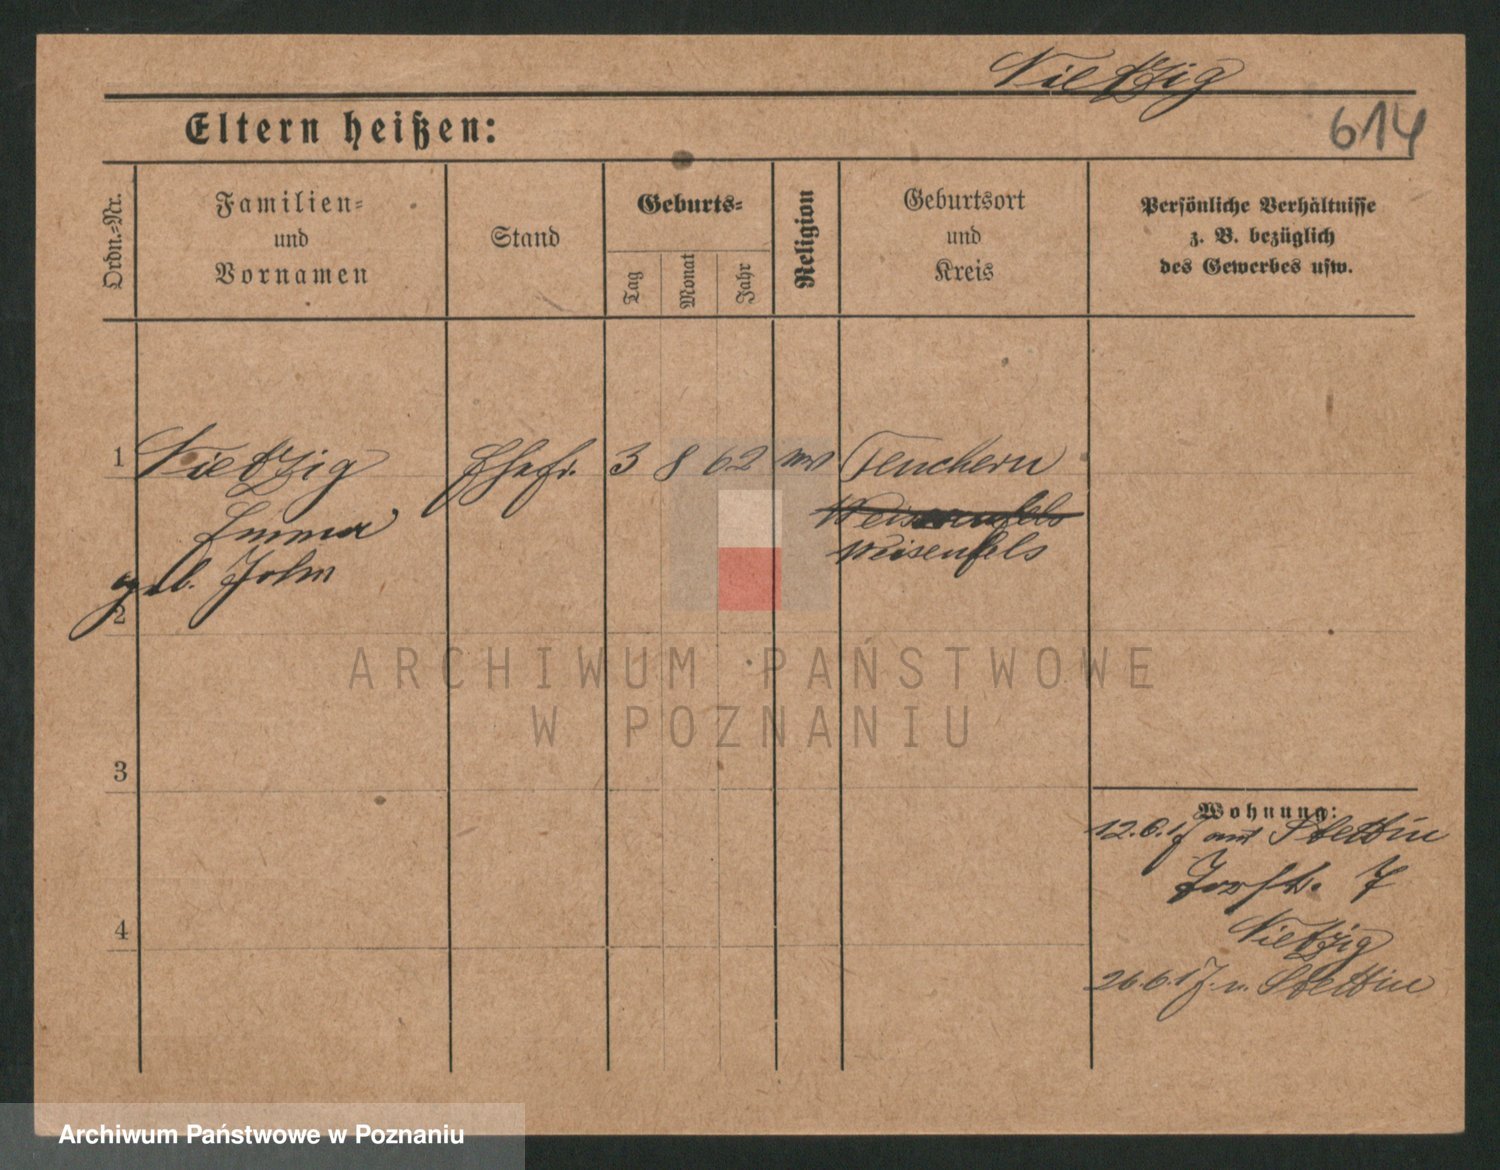 Nietzig
Eltern heißen:
614
Ordn.-Nr.
Familien-
und
Vornamen
Stand
Geburts-
Tag
Monat
Jahr
Religion
Geburtsort
und
Kreis
Persönliche Verhältnisse
z. B. bezüglich
des Gewerbes usw.
1
Nietzig
Ehefr.
3
8
62
Teuchern
Emma
Weissenfels
geb. John
Weisenfels
2
ARCHIWUM PAŃSTWOWE
W POZNANIU
3
Wohnung:
12.6.17 aus Stettin
Forstr. 7
4
Nietzig
26.6.17. n. Stettin
Archiwum Państwowe w Poznaniu